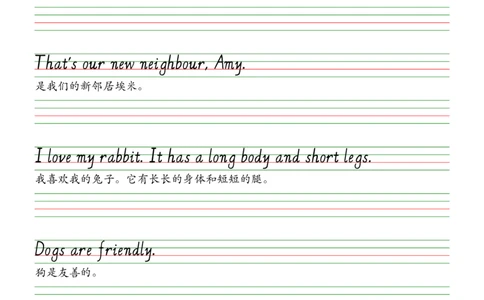 That's our new neighbour, Amy.
是我们的新邻居埃米。
I love my rabbit. It has a long body and short legs.
我喜欢我的兔子。它有长长的身体和短短的腿。
Dogs are friendly.
狗是友善的。